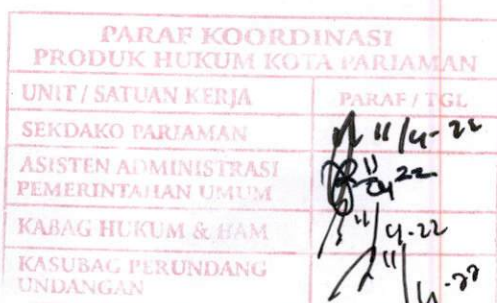 PARAF KOORDINASI
PRODUK HUKUM KOTA PARIAMAN
UNIT / SATUAN KERJA PARAF / TGL
SEKDAKO PARIAMAN 11/4-22
ASISTEN ADMINISTRASI
PEMERINTAHAN UMUM 11/4 22
KABAG HUKUM & HAM 11/4-22
KASUBAG PERUNDANG
UNDANGAN 11/4-22